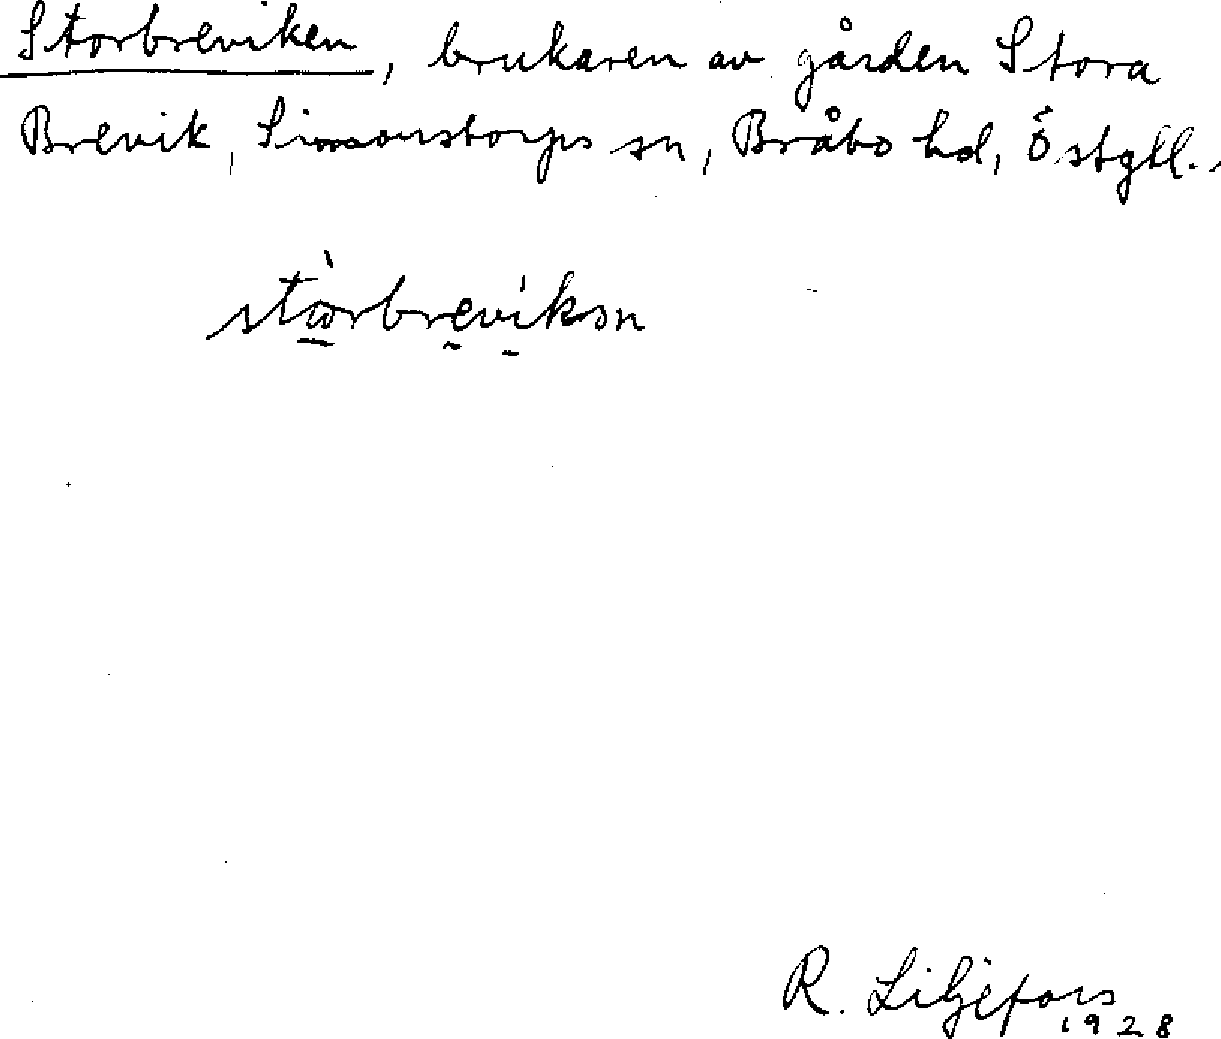 Storbreviken, brukaren av gården Stora
Brevik, Simonstorps sn, Bråbo hd, Östgtl.
R. Liljefors
1928